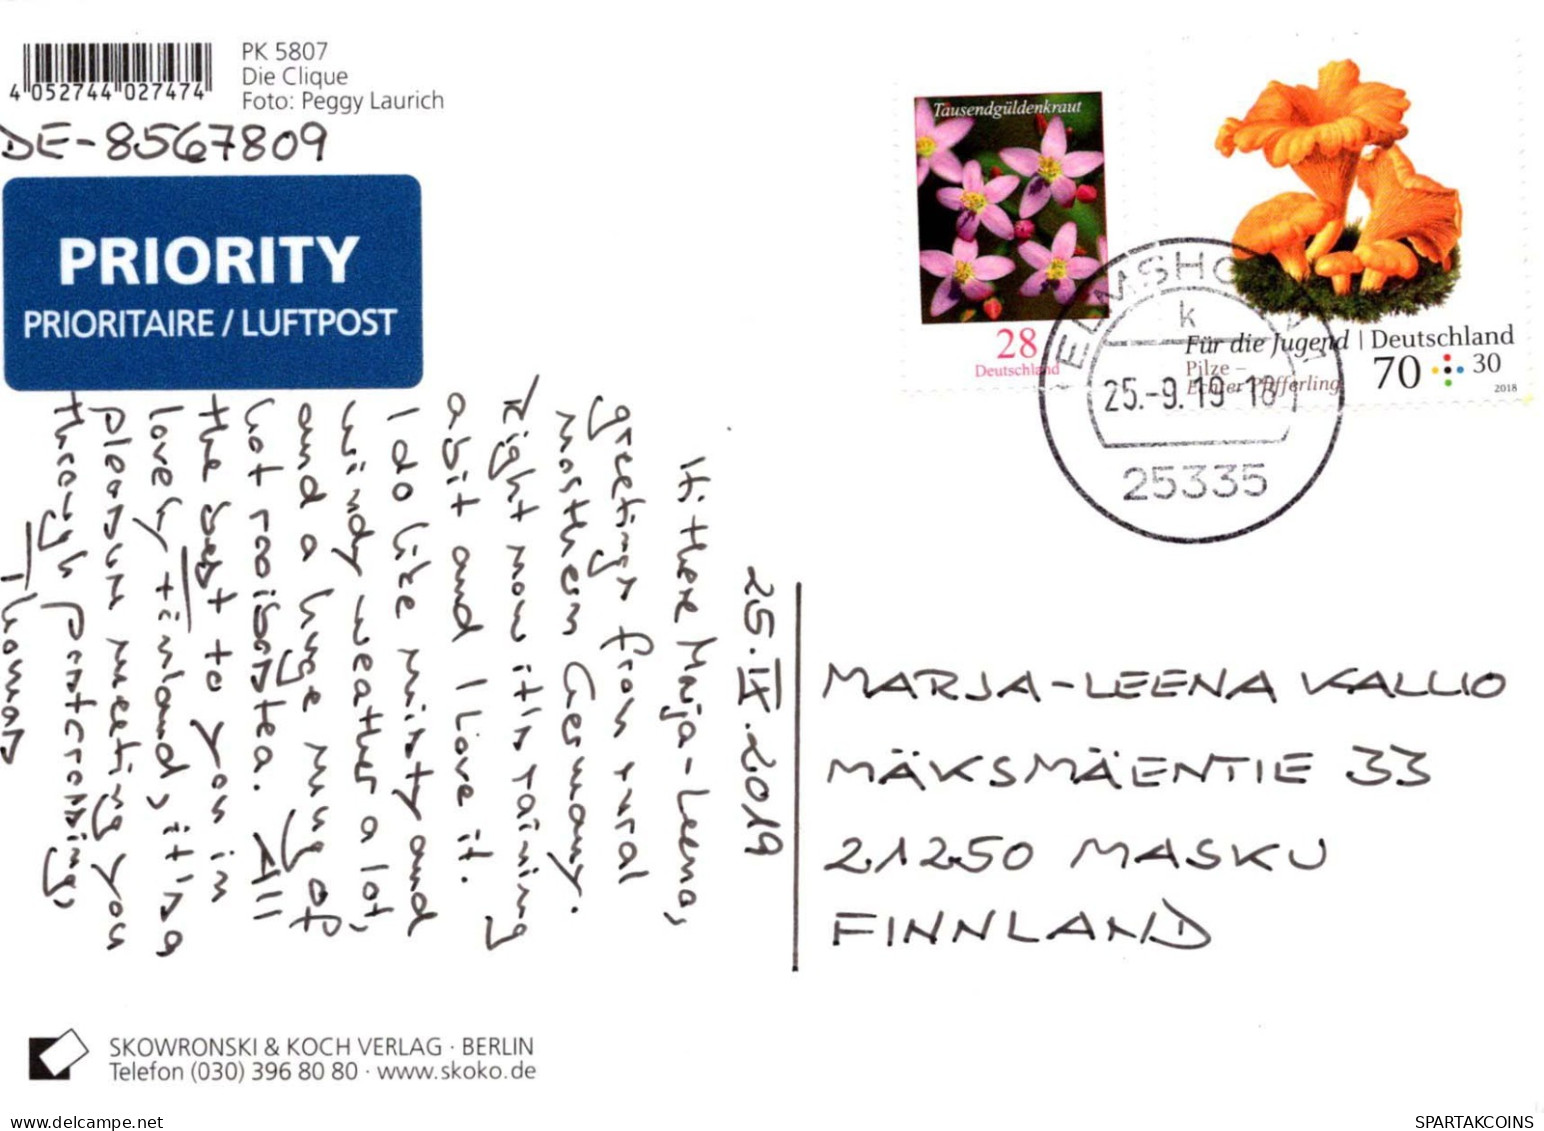 4 052744 027474
PK 5807
Die Clique
Foto: Peggy Laurich
DE-8567809
PRIORITY
PRIORITAIRE / LUFTPOST
Tausendgüldenkraut
28
Deutschland
Für die Jugend | Deutschland
Pilze –
Echter Pfifferling
70 30
2018
ELMSHORN
k
25.-9.19-18
25335
25.IX.2019
Hi there Marja-Leena,
greetings from rural
northern Germany.
Right now it's raining
a bit and I love it.
I do like misty and
windy weather a lot
and a huge mug of
hot rooibostea. All
the best to you in
lovely Finland, it's a
pleasure meeting you
through postcrossing,
Thomas
MARJA-LEENA KALLIO
MÄKSMÄENTIE 33
21250 MASKU
FINNLAND
SKOWRONSKI & KOCH VERLAG · BERLIN
Telefon (030) 396 80 80 · www.skoko.de
www.delcampe.net
SPARTAKCOINS